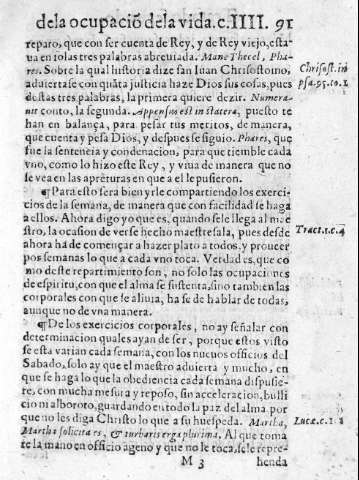 dela ocupaciõ dela vida.c.IIII. 91
reparo, que con ser cuenta de Rey, y de Rey viejo, esta-
ua en solas tres palabras abreuiada. Mane Thecel, Pha-
res. Sobre la qual historia dize san Iuan Chrisostomo,
aduiertase con quãta justicia haze Dios sus cosas, pues
destas tres palabras, la primera quiere dezir. Numera-
conto, la segunda. Appensus est in statera, puesto te
han en balança, para pesar tus meritos, de manera,
que cuenta y pesa Dios, y despues se siguio. Phares, que
fue la sentencia y condenacion, para que tiemble cada
vno, como lo hizo este Rey, y viua de manera que no
se vea en las apreturas en que a el le pusieron.
¶Para esto sera bien yrle compartiendo los exerci-
cios de la semana, de manera que con facilidad se haga
a ellos. Ahora digo yo que es, quando se le llega al mae-
stro, la ocasion de verse hecho maestresala, pues desde
ahora hà de començar a hazer plato a todos, y proueer
por semanas lo que a cada vno toca. Verdad es, que co
mo deste repartimiento son, no solo las ocupaciones
de espiritu, con que el alma se sustenta, sino tambien las
corporales con que se aliuia, ha se de hablar de todas,
aunque no de vna manera.
¶De los exercicios corporales, no ay señalar con
determinacion quales ayan de ser, porque estos visto
se esta varian cada semana, con los nueuos officios del
Sabado, solo ay que el maestro aduierta y mucho, en
que se haga lo que la obediencia cada semana dispusie-
re, con mucha mesura y reposo, sin acceleration, bulli
cio ni alboroto, guardando en todo la paz del alma, por
que no les diga Christo lo que a su huespeda. Martha,
Martha solicita es, & turbaris erga plurima. Al que toma
re la mano en officio ageno y que no le toca, se le repre-
M 3 henda
Chrisost. in
psa. 95. to. 1
Tract. 1. c. 4
Luca. c. 10